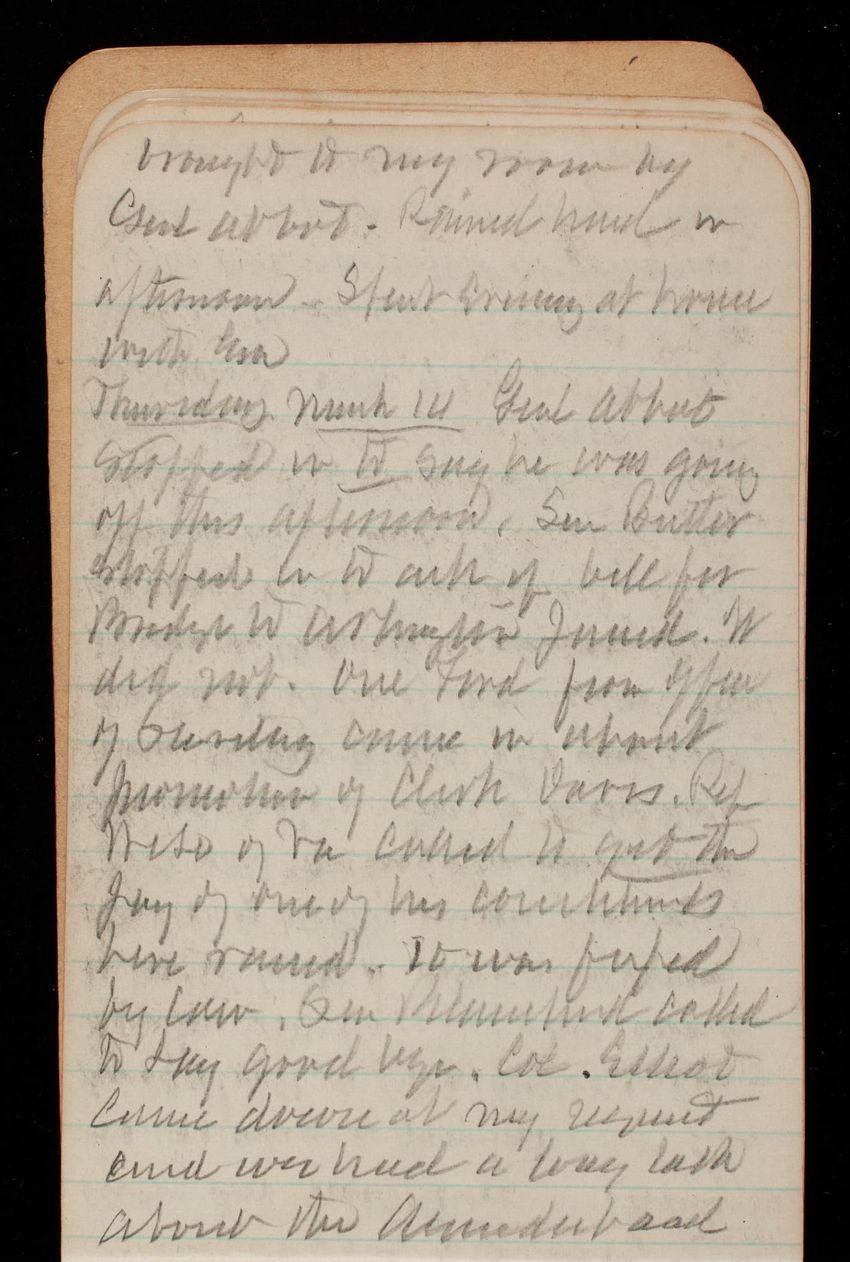 brought to my room by
Genl Abbot. Rained hard in
afternoon. Spent Evening at home
with Eva
Thursday March 14 Genl Abbot
stopped in to say he was going
off this afternoon, Sen Butler
stopped in to ask if bill for
Bridge to Arlington passed. It
did not. One Ford from Office
of came in about
promotion of Clerk Davis. Rep
Wise of Va called to get the
pay of one of his constituents
here raised. It was fixed
by law. Sen called
to say good bye. Col. Elliot
came down at my request
and we had a long talk
about the